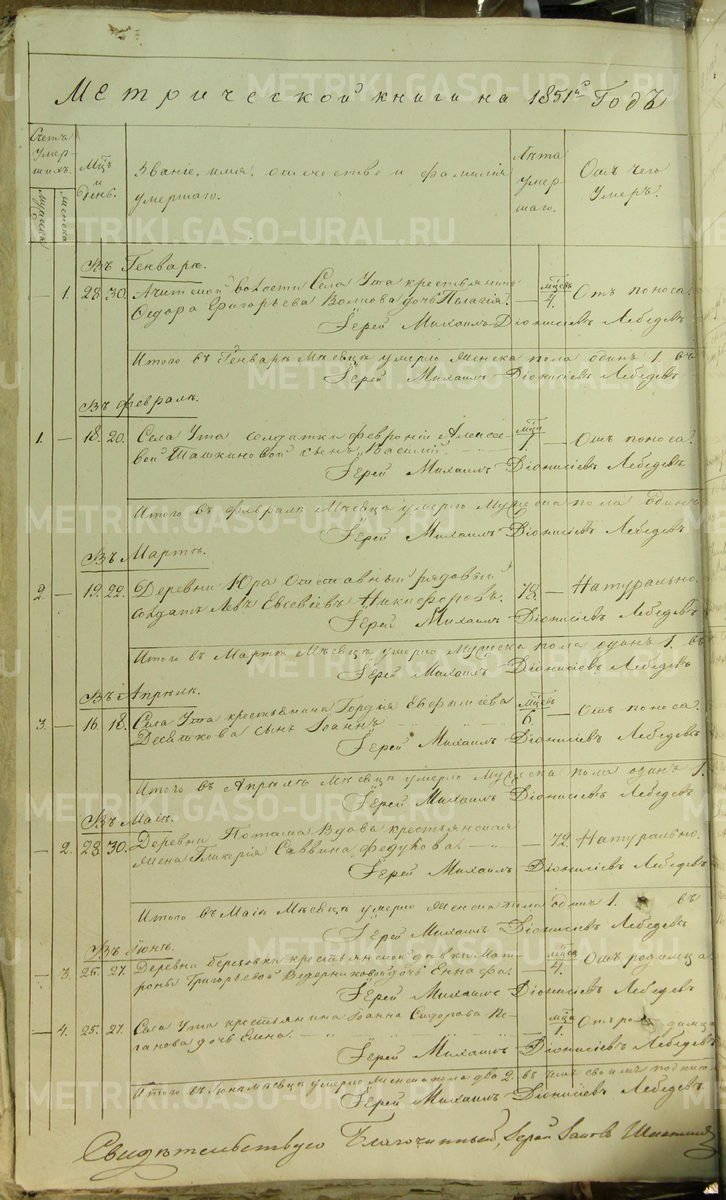 Метрической книги на 1851й Годъ
Счетъ умер-шихъ.
Мужеска
Женска
Мцъ и день.
Званіе, имя, отчество и фамилія
умершаго.
Лѣта умер-шаго.
Отъ чего умеръ?
Въ Генварѣ.
— 1. 28. 30. Ачитской волости Села Ута крестьянина — мцевъ
Ѳедора Григорьева Волкова дочь Палагія. 4. Отъ поноса.
Іерей Михаилъ Діонисіевъ Лебедевъ
Итого въ Генварѣ Мѣсяцѣ умерло женска пола одинъ 1. въ
Іерей Михаилъ Діонисіевъ Лебедевъ
Въ Февралѣ.
1. — 18. 20. Села Ута солдатки Февроніи Алексѣе-
вой Шашкиновой сынъ Василій. 1. — Отъ поноса.
Іерей Михаилъ Діонисіевъ Лебедевъ
Итого въ Февралѣ Мѣсяцѣ умерло Мужеска пола одинъ
Іерей Михаилъ Діонисіевъ Лебедевъ
Въ Мартѣ.
2. — 19. 22. Деревни Юра отставный рядовый 78. — Натурально.
солдатъ Левъ Евсевіевъ Никифоровъ.
Іерей Михаилъ Діонисіевъ Лебедевъ
Итого въ Мартѣ Мѣсяцѣ умерло Мужеска пола одинъ 1. въ
Іерей Михаилъ Діонисіевъ Лебедевъ
Въ Апрѣлѣ.
3. — 16. 18. Села Ута крестьянина Гордія Евфиміева мцевъ
Десяткова сынъ Іоаннъ 6. — Отъ поноса.
Іерей Михаилъ Діонисіевъ Лебедевъ
Итого въ Апрѣлѣ Мѣсяцѣ умерло Мужеска пола одинъ 1.
Іерей Михаилъ Діонисіевъ Лебедевъ
Въ Маіѣ.
— 2. 28. 30. Деревни Поташа Вдова крестьянская
жена Гликерія Саввина Федукова. — 72. Натурально.
Іерей Михаилъ Діонисіевъ Лебедевъ
Итого въ Маіѣ Мѣсяцѣ умерло женска пола одинъ 1. въ
Іерей Михаилъ Діонисіевъ Лебедевъ
Въ Іюнѣ.
— 3. 25. 27. Деревни Березовки крестьянской дѣвки Мат-
роны Григорьевой Ведерниковой дочь 4. Отъ родимца.
Іерей Михаилъ Діонисіевъ Лебедевъ
— 4. 25. 27. Села Ута крестьянина Іоанна Сидорова По-
ганова дочь Елена. 1. Отъ родимца
Іерей Михаилъ Діонисіевъ Лебедевъ
Итого въ Іюнѣ мѣсяцѣ умерло женска пола два 2. въ чемъ своимъ подписомъ
Іерей Михаилъ Діонисіевъ Лебедевъ
Свидѣтельствую Благочинный, Іерей
METRIKI.GASO-URAL.RU